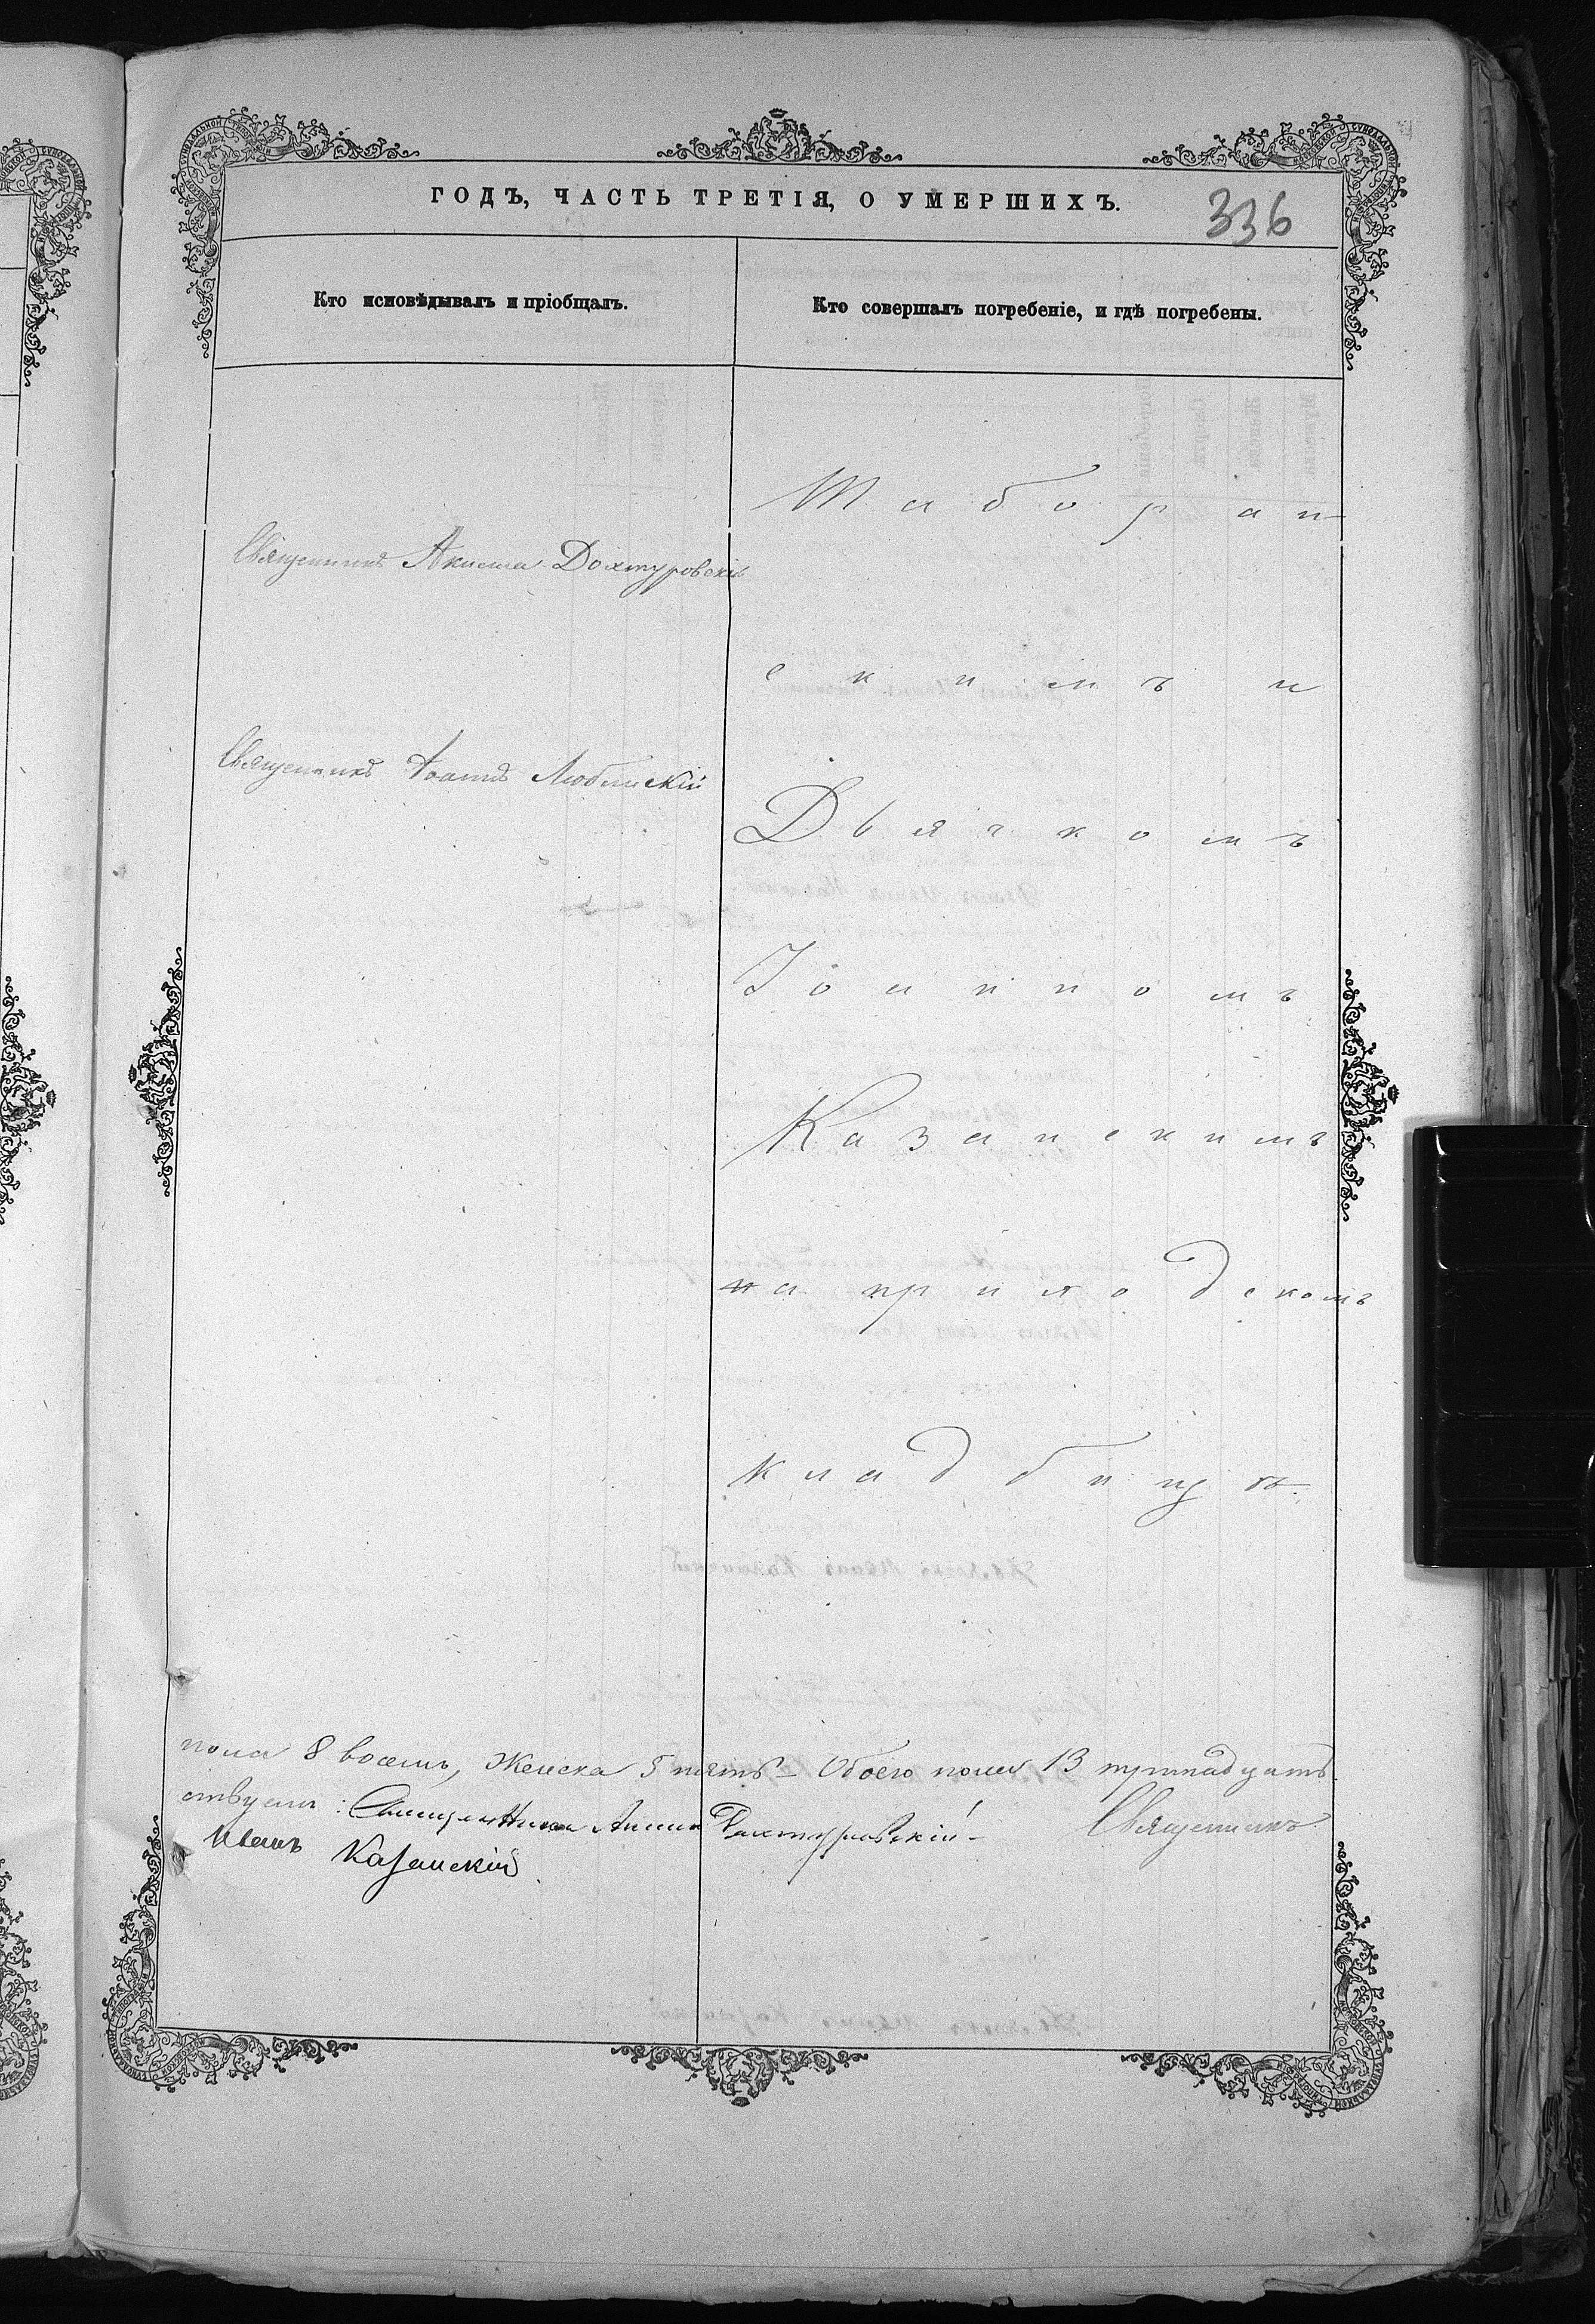 ГОДЪ, ЧАСТЬ ТРЕТІЯ, О УМЕРШИХЪ.
336
Кто исповѣдывалъ и пріобщалъ.
Кто совершалъ погребеніе, и гдѣ погребены.
Священникъ Акима Дохтуровскій
Священникъ Іоаннъ Люблинскій
Таборан
скимъ и
Дьячкомъ
Іоанномъ
Казанскимъ
на приходскомъ
кладбищѣ.
пола 8 восемь, Женска 5 пять – Обоего пола 13 тринадцать
ствуемъ: Священникъ Аким Дохтуровскій – Священникъ
Иванъ Казанскій